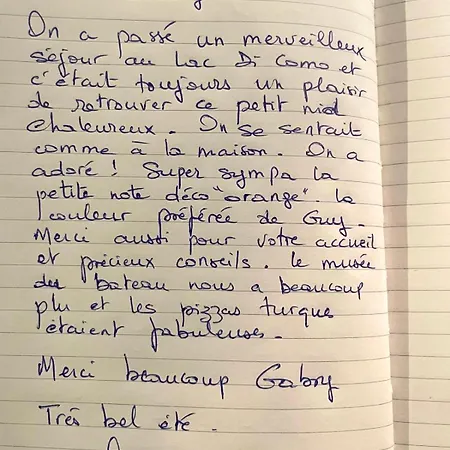 On a passé un merveilleux
séjour au Lac Di Como et
c'était toujours un plaisir
de retrouver ce petit nid
chaleureux. On se sentait
comme à la maison. On a
adoré ! Super sympa la
petite note déco "orange". la
couleur préférée de Guy.
Merci aussi pour votre accueil
et précieux conseils. le musée
du bateau nous a beaucoup
plu et les pizzas turque
étaient fabuleuses.
Merci beaucoup Gabry
Très bel été.